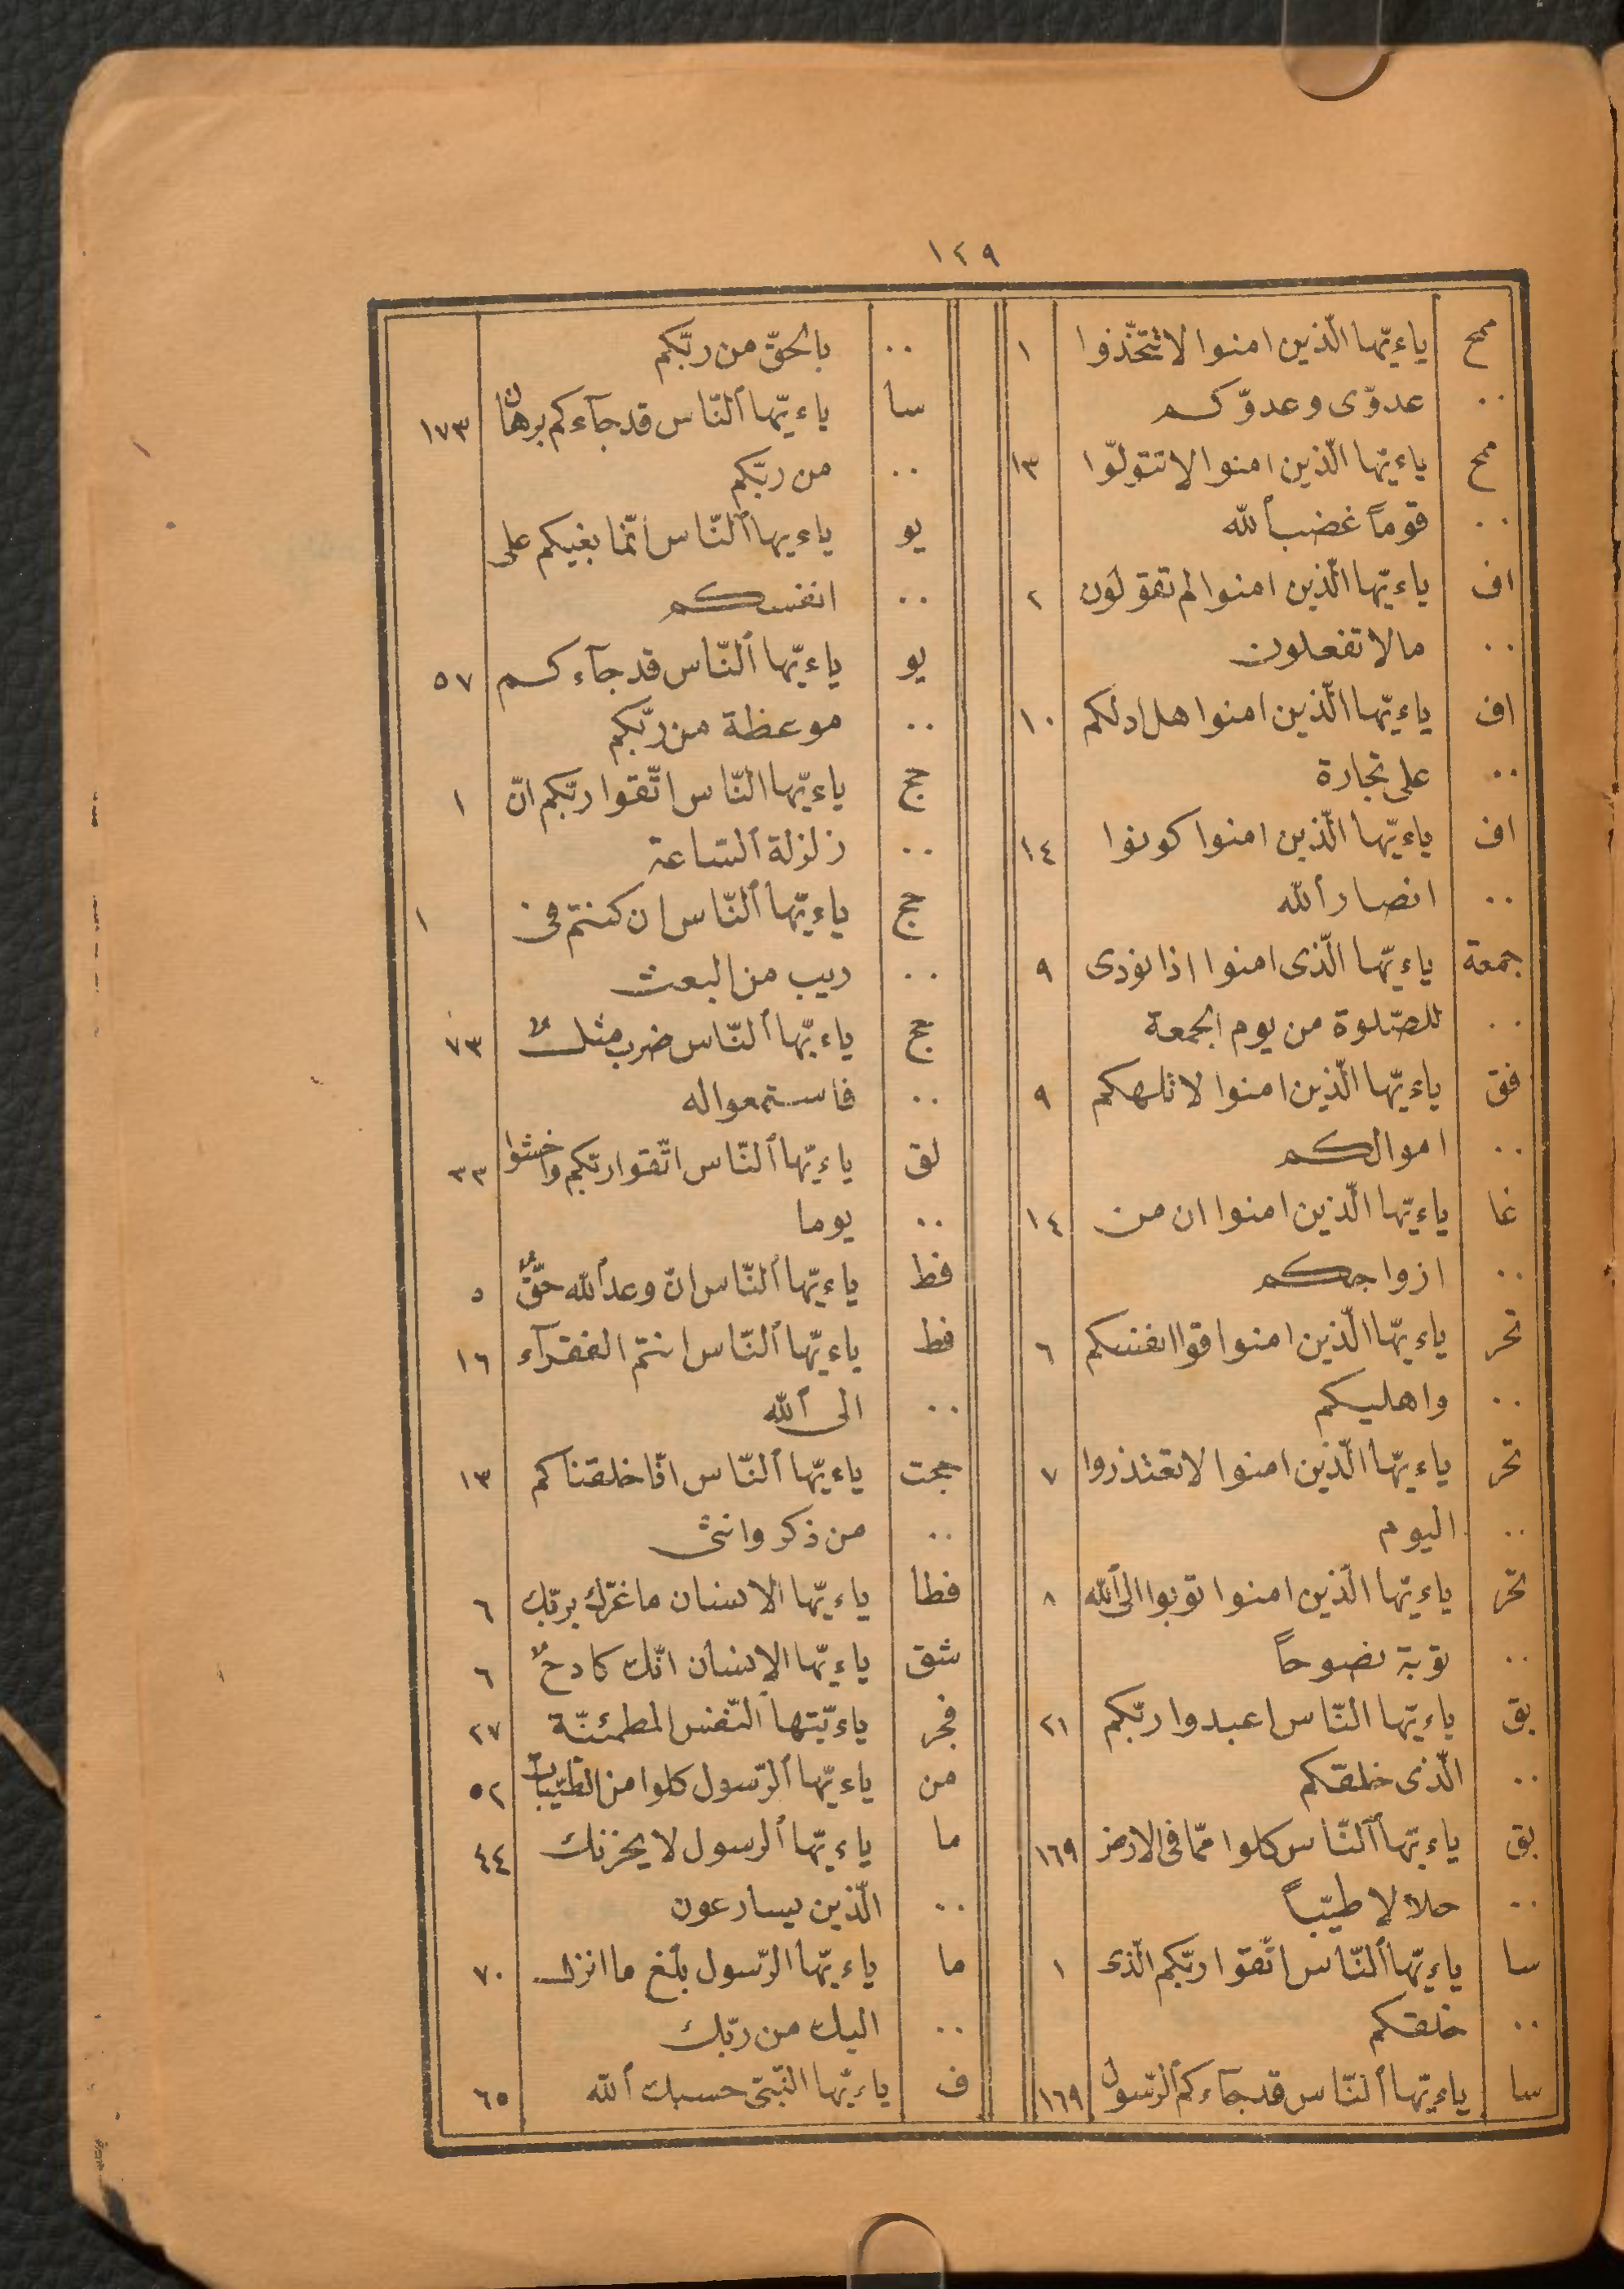 ١٢٩
ممح ياءيّها الّذين امنوا لا تتّخذوا ١
.. عدوّى وعدوّكم
ممح ياءيّها الّذين امنوا لا تتولّوا ١٣
.. قوماً غضب ٱلله
اف ياءيّها الّذين امنوا لم تقولون ٢
.. مالا تفعلون
اف ياءيّها الّذين امنوا هل ادلكم ١٠
.. على تجارة
اف ياءيّها الّذين امنوا كونوا ١٤
.. انصار ٱلله
جمعة ياءيّها الّذى امنوا اذا نودى ٩
.. للصّلوة من يوم الجمعة
فق ياءيّها الّذين امنوا لا تلهكم ٩
.. اموالكم
غا ياءيّها الّذين امنوا ان من ١٤
.. ازواجكم
تحر ياءيّها الّذين امنوا قوا انفسكم ٦
.. واهليكم
تحر ياءيّها الّذين امنوا لا تعتذروا ٧
.. اليوم
تحر ياءيّها الّذين امنوا توبوا الى ٱلله ٨
.. توبة نصوحاً
بق ياءيّها النّاس اعبدوا ربّكم ٢١
.. الّذى خلقكم
بق ياءيّها ٱلنّاس كلوا ممّا فى الارض ١٦٩
.. حلالا طيّباً
سا ياءيّها ٱلنّاس اتّقوا ربّكم الّذى ١
.. خلقكم
سا ياءيّها ٱلنّاس قد جآءكم ٱلرّسول ١٦٩
.. بالحقّ من ربّكم
سا ياءيّها ٱلنّاس قد جآءكم برهان ١٧٣
.. من ربّكم
يو ياءيها ٱلنّاس انّما بغيكم على
.. انفسكم
يو ياءيّها ٱلنّاس قد جآءكم ٥٧
.. موعظة من ربّكم
حج ياءيّها النّاس اتّقوا ربّكم انّ ١
.. زلزلة ٱلسّاعة
حج ياءيّها ٱلنّاس ان كنتم فى ١
.. ريب من البعث
حج ياءيّها ٱلنّاس ضرب مثلٌ ٧٣
.. فاستمعوا له
لق ياءيّها ٱلنّاس اتّقوا ربّكم واخشوا ٣٣
.. يوما
فط ياءيّها ٱلنّاس انّ وعد ٱلله حقٌّ ٥
فط ياءيّها ٱلنّاس انتم الفقرآء ١٦
.. الى ٱلله
حجت ياءيّها ٱلنّاس انّا خلقناكم ١٣
.. من ذكر وانثى
فطا ياءيّها الانسان ما غرّك بربّك ٦
شق ياءيّها الانسان انّك كادحٌ ٦
فجر ياءيّتها ٱلنّفس المطمئنّة ٢٧
من ياءيّها ٱلرّسول كلوا من الطيّبات ٥٢
ما ياءيّها ٱلرسول لا يحزنك ٤٤
.. الّذين يسارعون
ما ياءيّها ٱلرّسول بلّغ ما انزل ٧٠
.. اليك من ربّك
ف ياءيّها النّبىّ حسبك ٱلله ٦٥